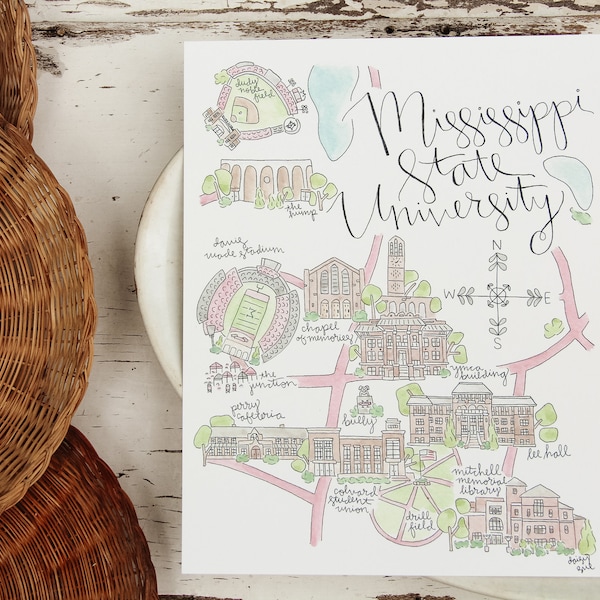 dudy
noble
field
Mississippi
State
University
the
hump
W E
N
S
davis
wade stadium
M
chapel
of memories
ymca
building
the
junction
perry
cafeteria
bully
lee hall
mitchell
memorial
library
colvard
student
union
drill
field